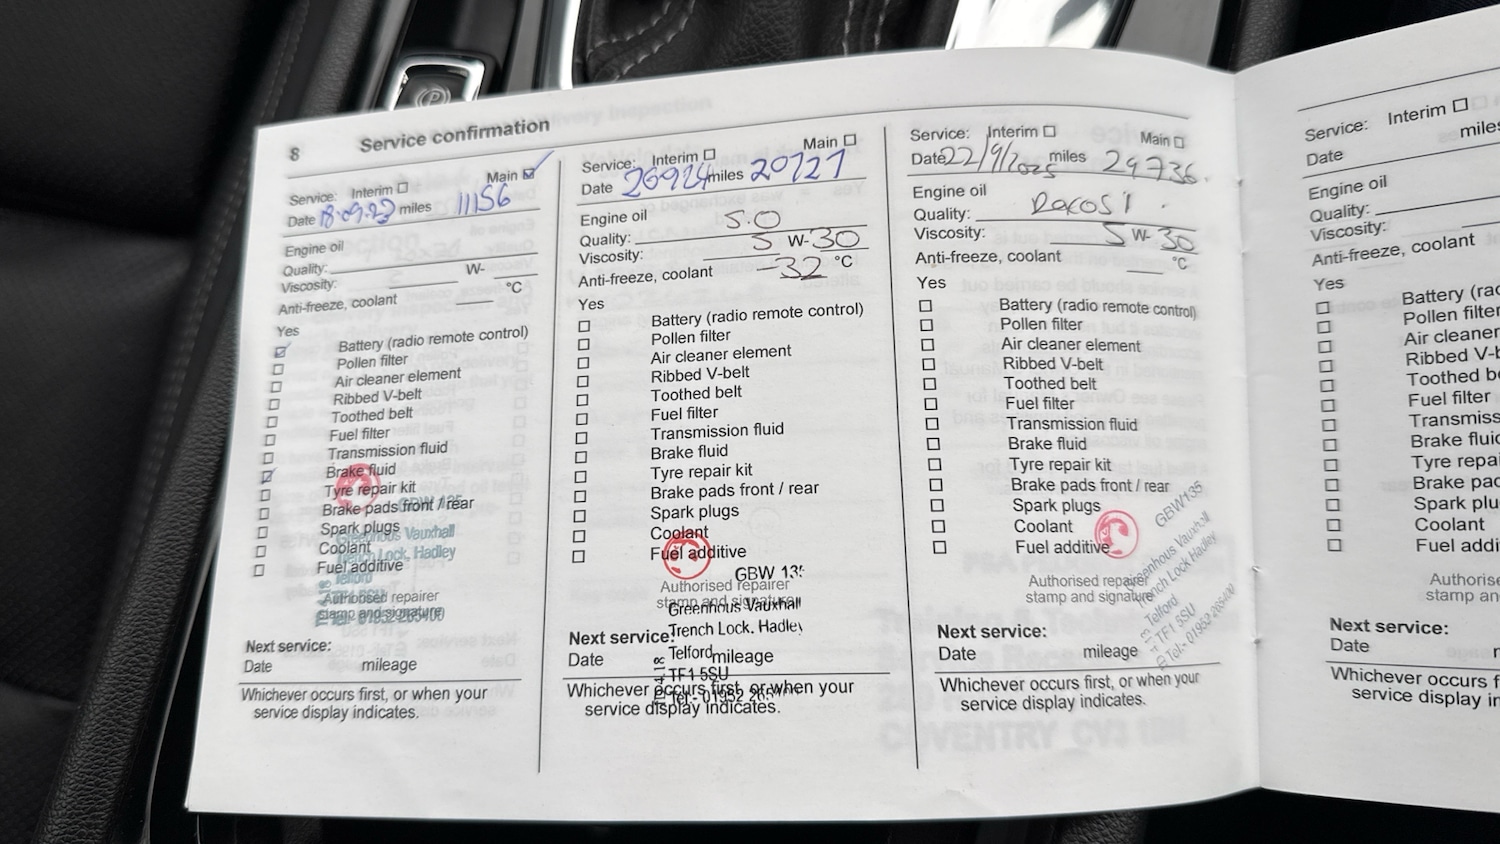 8 Service confirmation
Service: Interim ☐ Main ☑
Date 18.09.23 miles 11156
Engine oil
Quality:
Viscosity: W-
Anti-freeze, coolant °C
Yes
☑ Battery (radio remote control)
☐ Pollen filter
☐ Air cleaner element
☐ Ribbed V-belt
☐ Toothed belt
☐ Fuel filter
☐ Transmission fluid
☑ Brake fluid
☐ Tyre repair kit
☐ Brake pads front / rear
☐ Spark plugs
☐ Coolant
☐ Fuel additive
GBW 135
Greenhous Vauxhall
Trench Lock, Hadley
Telford
Authorised repairer
stamp and signature
Tel: 01952 265400
Next service:
Date mileage
Whichever occurs first, or when your
service display indicates.
Service: Interim ☐ Main ☐
Date 260924 miles 20727
Engine oil
Quality: 5.0
Viscosity: 5 W-30
Anti-freeze, coolant -32 °C
Yes
☐ Battery (radio remote control)
☐ Pollen filter
☐ Air cleaner element
☐ Ribbed V-belt
☐ Toothed belt
☐ Fuel filter
☐ Transmission fluid
☐ Brake fluid
☐ Tyre repair kit
☐ Brake pads front / rear
☐ Spark plugs
☐ Coolant
☐ Fuel additive
GBW 135
Authorised repairer
stamp and signature
Greenhous Vauxhall
Trench Lock. Hadley
Next service:
Telford
Date mileage
TF1 5SU
Whichever occurs first, or when your
Tel - 01952
service display indicates.
Service: Interim ☐ Main ☐
Date 22/9/2025 miles 29736
Engine oil
Quality: Dexos 1
Viscosity: 5 W-30
Anti-freeze, coolant °C
Yes
☐ Battery (radio remote control)
☐ Pollen filter
☐ Air cleaner element
☐ Ribbed V-belt
☐ Toothed belt
☐ Fuel filter
☐ Transmission fluid
☐ Brake fluid
☐ Tyre repair kit
☐ Brake pads front / rear
☐ Spark plugs
☐ Coolant
☐ Fuel additive
GBW135
Greenhous Vauxhall
Trench Lock, Hadley
Telford
TF1 5SU
Tel - 01952 265400
Authorised repairer
stamp and signature
Next service:
Date mileage
Whichever occurs first, or when your
service display indicates.
Service: Interim ☐
Date miles
Engine oil
Quality:
Viscosity:
Anti-freeze, coolant
Yes
☐ Battery (rad
☐ Pollen filter
☐ Air cleaner
☐ Ribbed V-b
☐ Toothed be
☐ Fuel filter
☐ Transmiss
☐ Brake fluid
☐ Tyre repai
☐ Brake pad
☐ Spark plu
☐ Coolant
☐ Fuel addi
Authorise
stamp an
Next service:
Date
Whichever occurs f
service display in